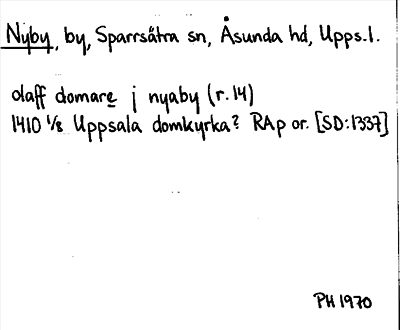 Nyby, by, Sparrsätra sn, Åsunda hd, Upps.l.
olaff domare j nyaby (r.14)
1410 1/8 Uppsala domkyrka? RAp or. [SD:1337]
PH 1970